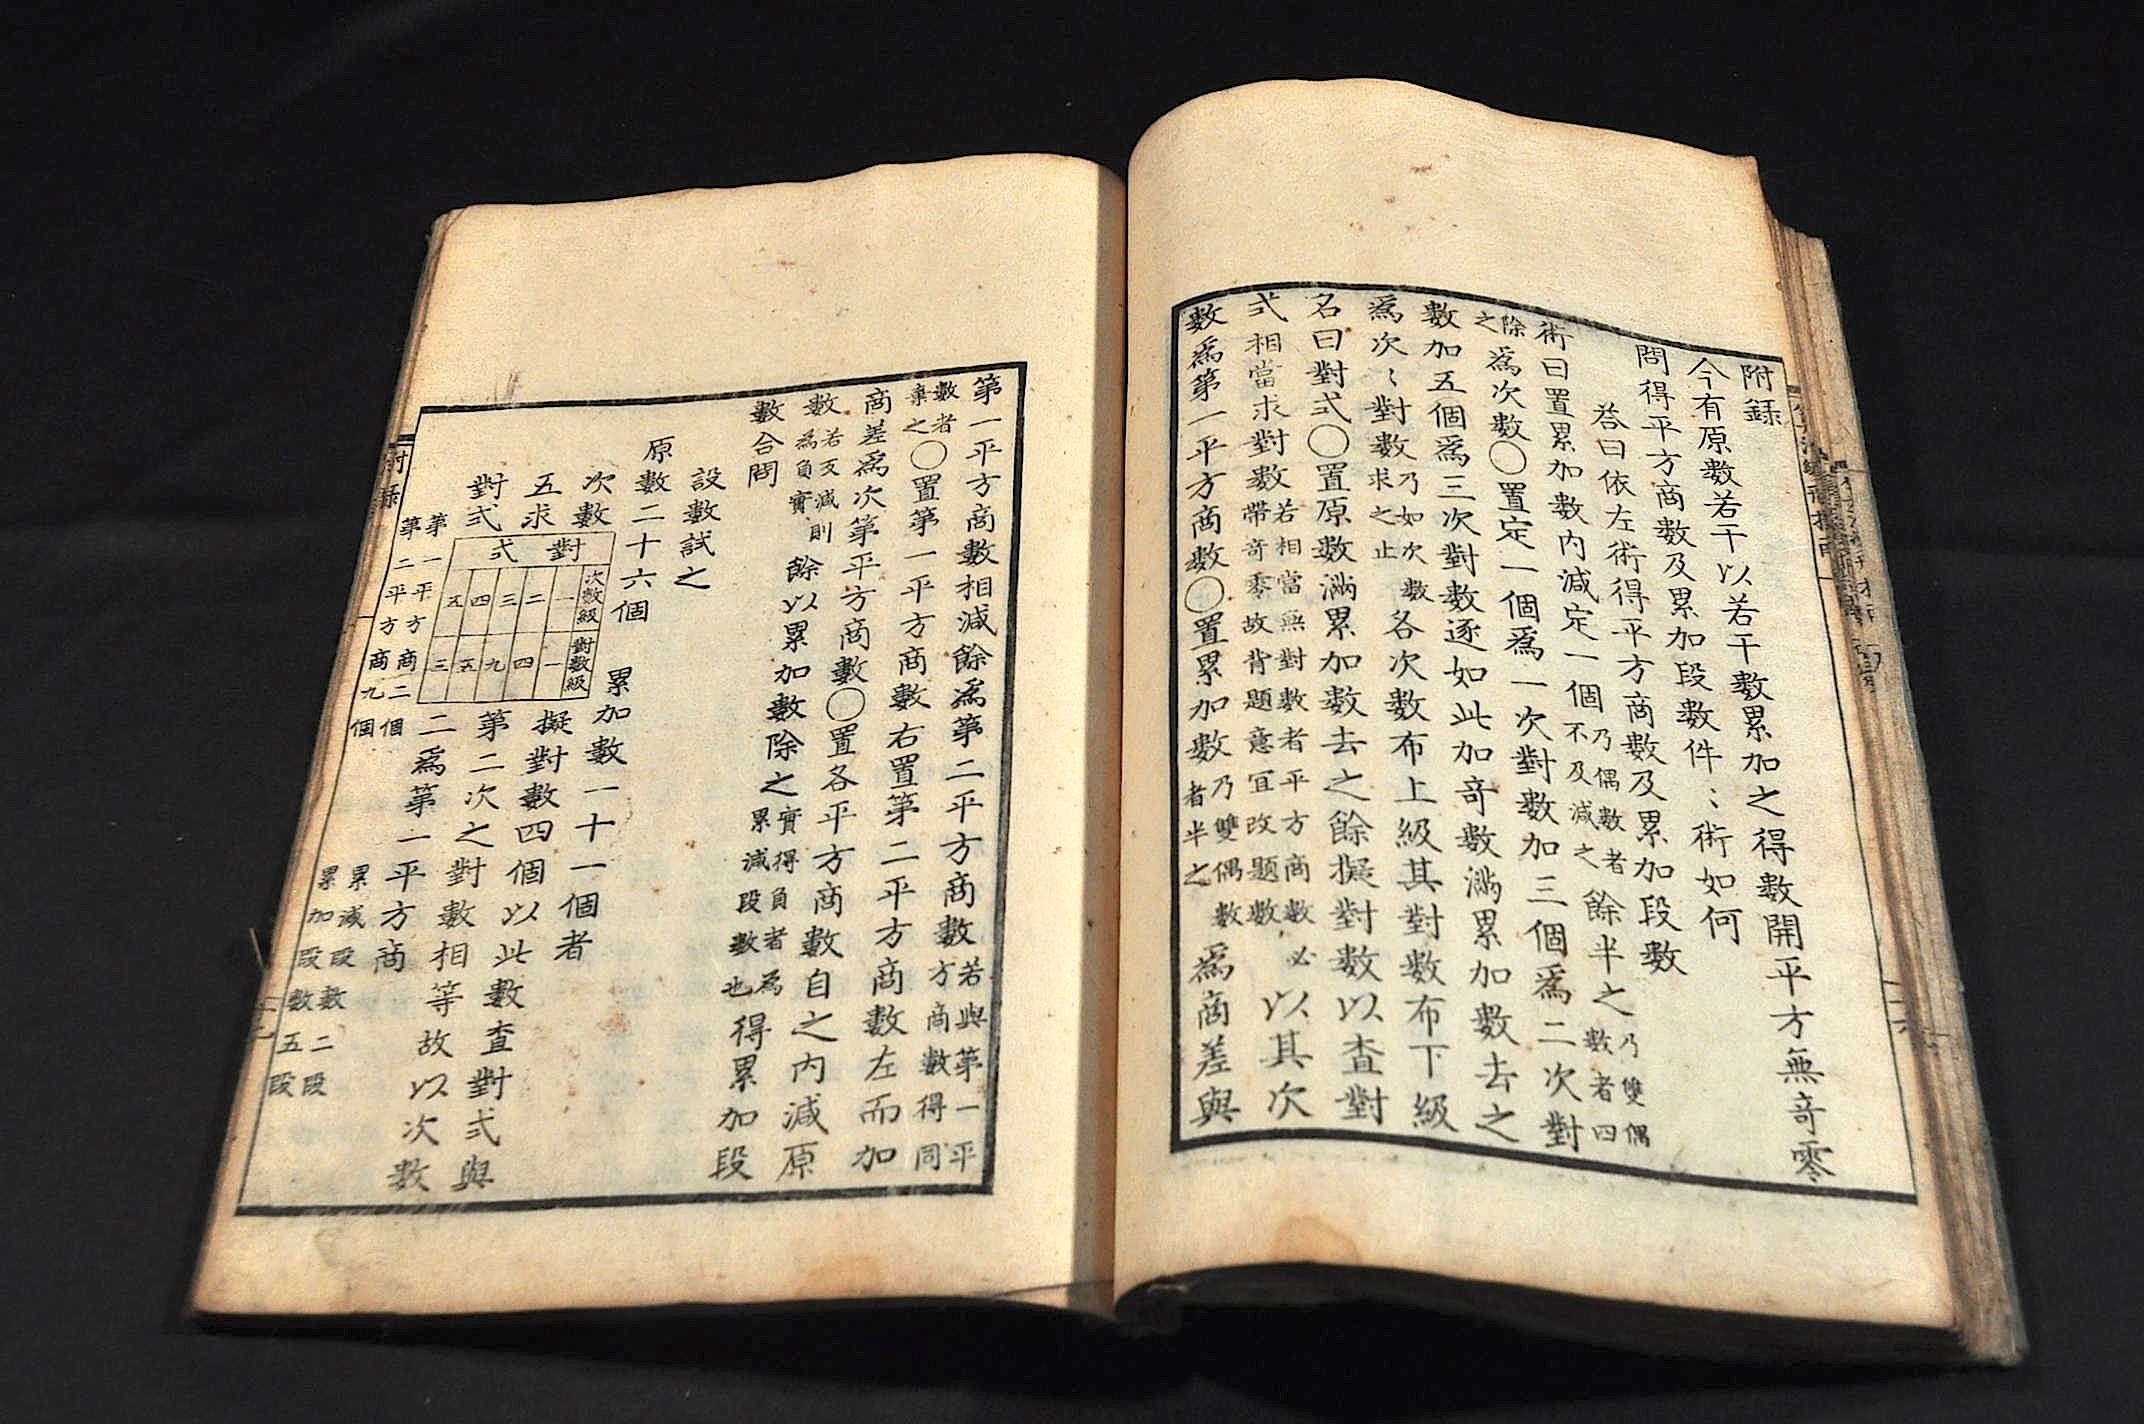 附録
今有原數若干以若干數累加之得數開平方無竒零
問得平方商數及累加段數件〻術如何
答曰依左術得平方商數及累加段數
術曰置累加數內減定一個乃偶數者不及減之餘半之乃雙偶數者四
除之為次數○置定一個為一次對數加三個為二次對
數加五個為三次對數逐如此加竒數滿累加數去之
為次〻對數乃如次數求之止各次數布上級其對數布下級
名曰對式○置原數滿累加數去之餘擬對數以查對
式相當求對數若相當無對數者平方商數必帶竒零故背題意冝改題數以其次
數為第一平方商數○置累加數乃雙偶數者半之為商差與
第一平方商數相減餘為第二平方商數若與第一平方商數得同
數者棄之○置第一平方商數右置第二平方商數左而加
商差為次第平方商數○置各平方商數自之內減原
數若反減則為負實餘以累加數除之實得負者為累減段數也得累加段
數合問
設數試之
原數二十六個 累加數一十一個者
次數五求對式
對式
次數級 一 二 三 四 五
對數級 一 四 九 五 三
擬對數四個以此數查對式與
第二次之對數相等故以次數
二為第一平方商
第一平方商二個 累減段數二段
第二平方商九個 累加段數五段
附錄